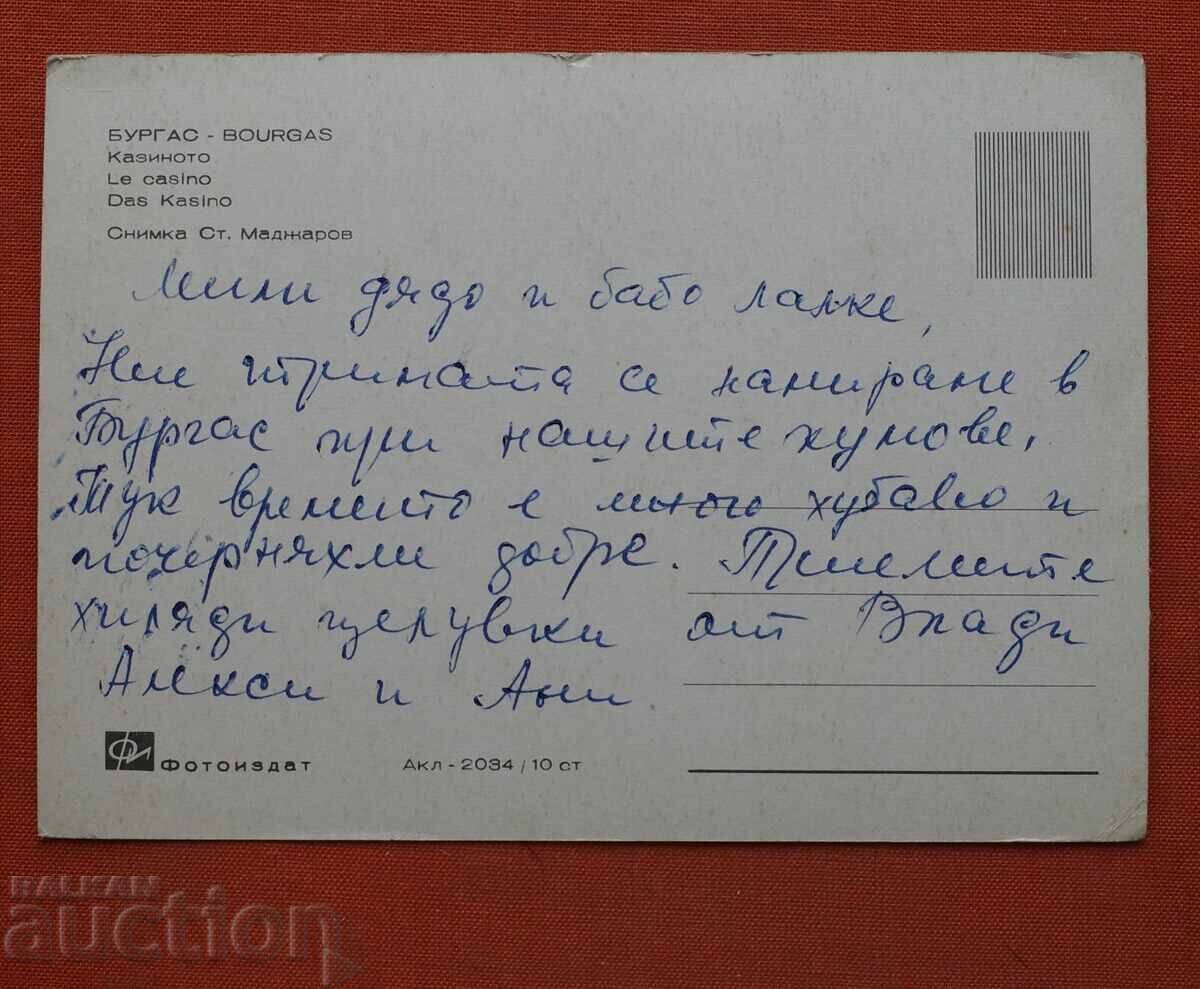 БУРГАС - BOURGAS
Казиното
Le casino
Das Kasino
Снимка Ст. Маджаров
Мили дядо и бабо Лалке,
Ние тримата се намираме в
Бургас при нашите кумове.
Тук времето е много хубаво и
почерняхми добре. Приемите
хиляди целувки от Влади
Алекси и Ани
Фотоиздат
Акл-2034/10 ст
BALKAN
auction